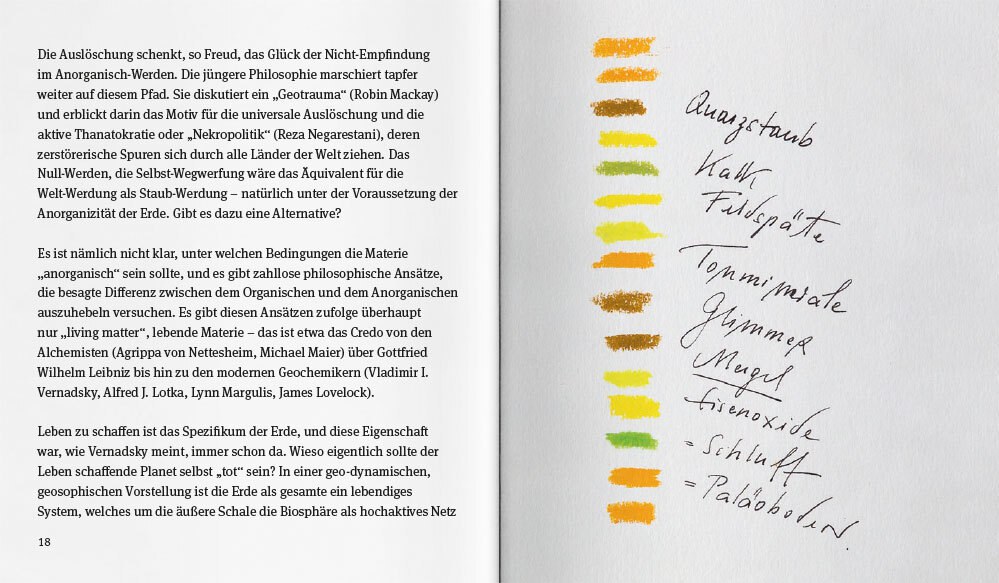 Die Auslöschung schenkt, so Freud, das Glück der Nicht-Empfindung
im Anorganisch-Werden. Die jüngere Philosophie marschiert tapfer
weiter auf diesem Pfad. Sie diskutiert ein „Geotrauma“ (Robin Mackay)
und erblickt darin das Motiv für die universale Auslöschung und die
aktive Thanatokratie oder „Nekropolitik“ (Reza Negarestani), deren
zerstörerische Spuren sich durch alle Länder der Welt ziehen. Das
Null-Werden, die Selbst-Wegwerfung wäre das Äquivalent für die
Welt-Werdung als Staub-Werdung – natürlich unter der Voraussetzung der
Anorganizität der Erde. Gibt es dazu eine Alternative?
Es ist nämlich nicht klar, unter welchen Bedingungen die Materie
„anorganisch“ sein sollte, und es gibt zahllose philosophische Ansätze,
die besagte Differenz zwischen dem Organischen und dem Anorganischen
auszuhebeln versuchen. Es gibt diesen Ansätzen zufolge überhaupt
nur „living matter“, lebende Materie – das ist etwa das Credo von den
Alchemisten (Agrippa von Nettesheim, Michael Maier) über Gottfried
Wilhelm Leibniz bis hin zu den modernen Geochemikern (Vladimir I.
Vernadsky, Alfred J. Lotka, Lynn Margulis, James Lovelock).
Leben zu schaffen ist das Spezifikum der Erde, und diese Eigenschaft
war, wie Vernadsky meint, immer schon da. Wieso eigentlich sollte der
Leben schaffende Planet selbst „tot“ sein? In einer geo-dynamischen,
geosophischen Vorstellung ist die Erde als gesamte ein lebendiges
System, welches um die äußere Schale die Biosphäre als hochaktives Netz
18
Quarzstaub
Kalk,
Feldspäte
Tonminerale
Glimmer
Mergel
Eisenoxide
= Schluff
= Paläoboden.